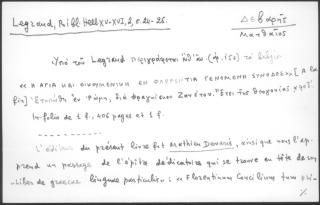 Legrand, Bibl. Hell XV-XVI, 2, σ. 24-25.
Δεβαρῆς
Ματθαῖος
Ὑπὸ τοῦ Legrand περιγράφεται (ἀρ. 152) τὸ βιβλίο
«Η ΑΓΙΑ ΚΑΙ ΟΙΚΟΥΜΕΝΙΚΗ ΕΝ ΦΛΩΡΕΝΤΙΑ ΓΕΝΟΜΕΝΗ ΣΥΝΟΔΟΣ» [A la
fin] Ἐτυπώθη ἐν Ῥώμῃ, διὰ Φραγκίσκου Ζανέτου. Ἔτει τῆς θεογονίας
In-folio de 1 f., 406 pages et 1 f.
L'éditeur du présent livre fut Mathieu Devaris, ainsi que nous l'ap-
prend un passage de l'épître dédicatoire qui se trouve en tête de son
«Liber de graecae linguae particulis»: «Florentinum Concilium tum